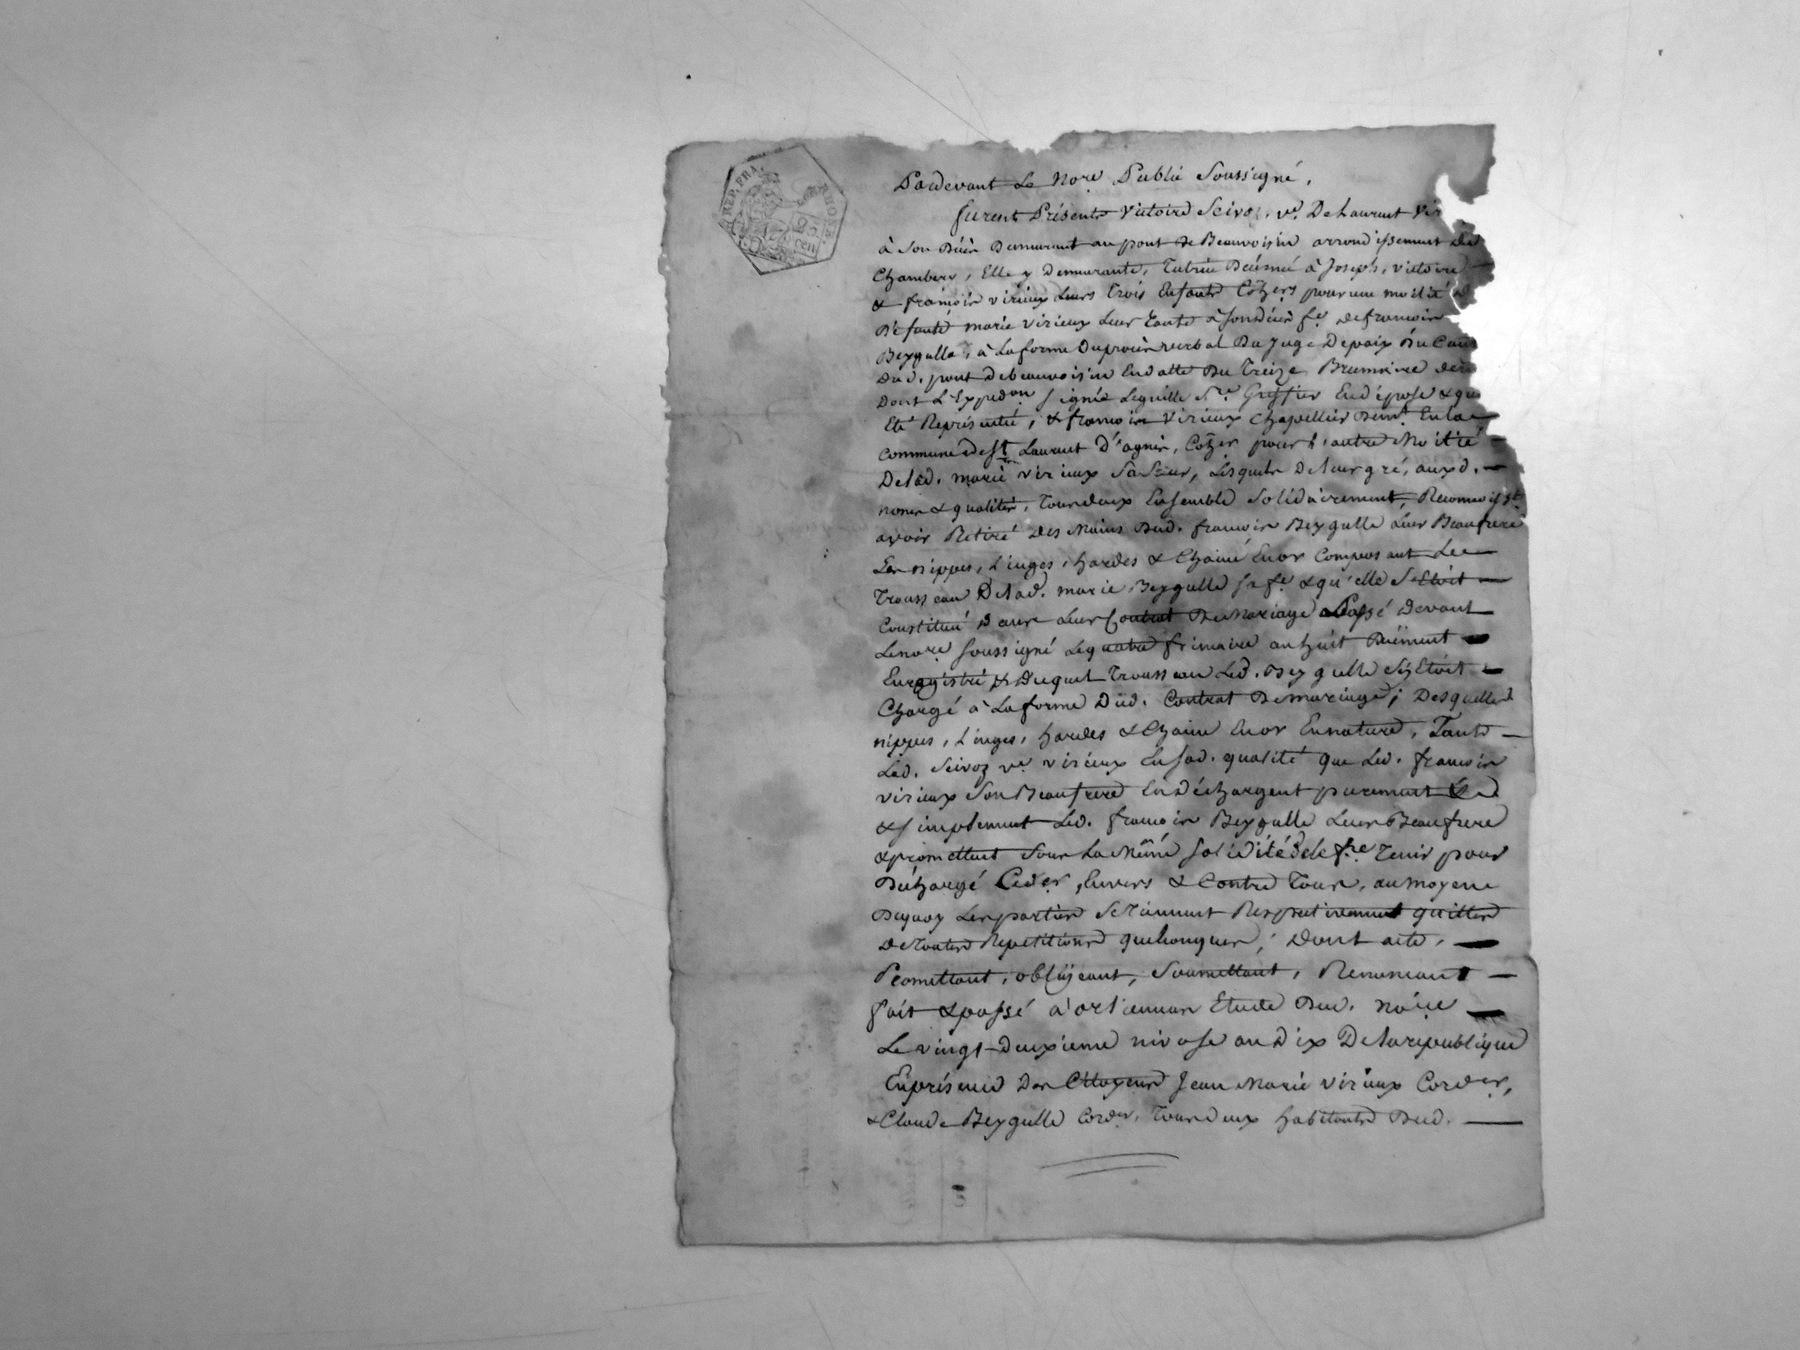 REP. FRA.
RHONE
25 cen
Pardevant Le Nore Public Soussigné,
furent Présents Victoire Seivoz, ve. De Laurant Vir
à Son Décès Demurant au pont De Beauvoisin arrondissement De
Chambery, Elle y Demurante, Tutrice Décernée à Joseph, Victoire
& françois virieux Leurs Trois Enfants Cohers pour une moitié D
Défunte marie virieux Leur Tante à Son décès fe. de françois
Beygulle, à La forme Du procès verbal Du Juge De paix Du Can
Dud. pont de beauvoisin En datte Du Treize Brumaire
Dont L'Expedon Signée Leguille Sre Greffier En dépose & qui
Eté Représenté, & françois Virieux Chapellier Demt. En la
commune de St Laurant D'agnin, Coher pour L'autre Moitié
De lad. marie virieux Sa Sœur, Lesquels De leur gré, auxd.
noms & qualités, Tous deux Ensemble Solidairement, Reconnoisst
avoir Retiré Des Mains Dud. françois Beygulle Leur Beaufrere
Les nippes, Linges, hardes & Chaine En or Composant Le
Trousseau De lad. marie Beygulle Sa fe. & qu'elle S'Etoit
Constitué Dans Leur Contrat De Mariage Passé Devant
Le nore soussigné Le quatre frimaire an huit Duëment
Enregistré & Duquel Trousseau Led. Beygulle S'Etoit
Chargé à La forme Dud. Contrat De mariage; Desquelles
nippes, Linges, hardes & Chaine En or En nature, Tant
Lad. Seivoz ve virieux En Sad. qualité que Led. françois
virieux Son Beaufrere En déchargent purement
& Simplement Led. françois Beygulle Leur Beaufrere
& promettent Sous La Même Solidité De Le fre Tenir pour
Déchargé Envers & Contre Tous, au moyen
De quoy Les parties Se Tiennent Respectivement quittes
De Toutes Repetitions quelconques; Dont acte,
Promettant, obligeant, Soumettant, Renoncant
fait & passé à orlienas Etude Dud. noire
Le vingt-deuxieme nivose an Dix De la republique
En présence Des Citoyens Jean Marie virieux Corder,
& Claude Beygulle Corder, Tous deux habitants Dud.